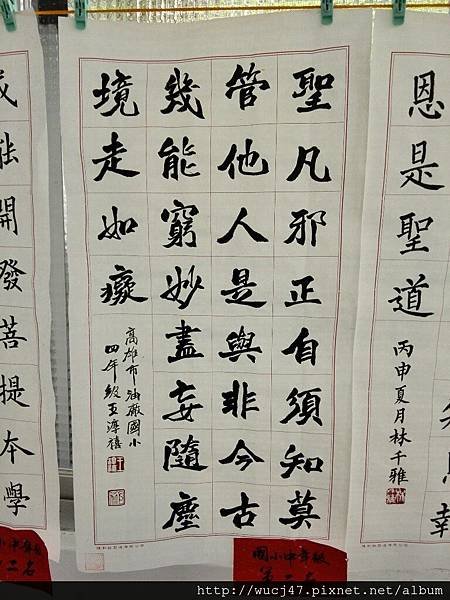 恩是聖道
丙申夏月林千雅
聖凡邪正自須知莫
管他人是與非今古
幾能窮妙盡妄隨塵
境走如癡
高雄市油廠國小
四年級王淳禧
能開發菩提本學
國小中年級
小中年級
二名
http://wucj47.pixnet.net/album